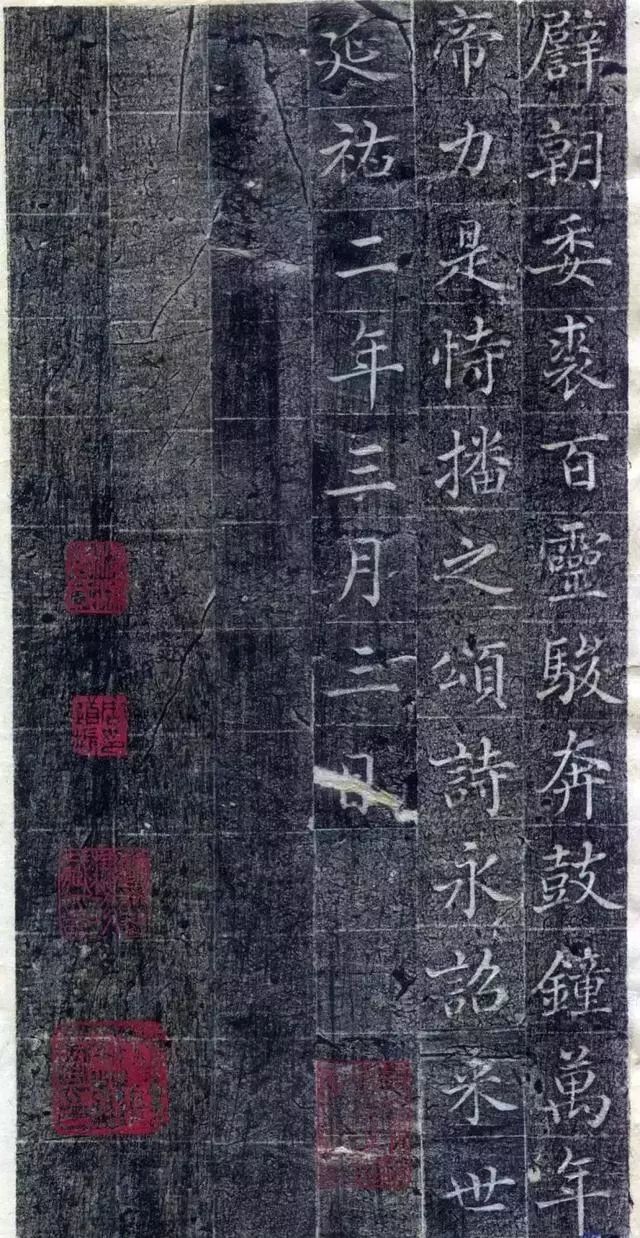 辟朝委裘百靈駿奔鼓鐘萬年
帝力是恃播之頌詩永詔来世
延祐二年三月二日